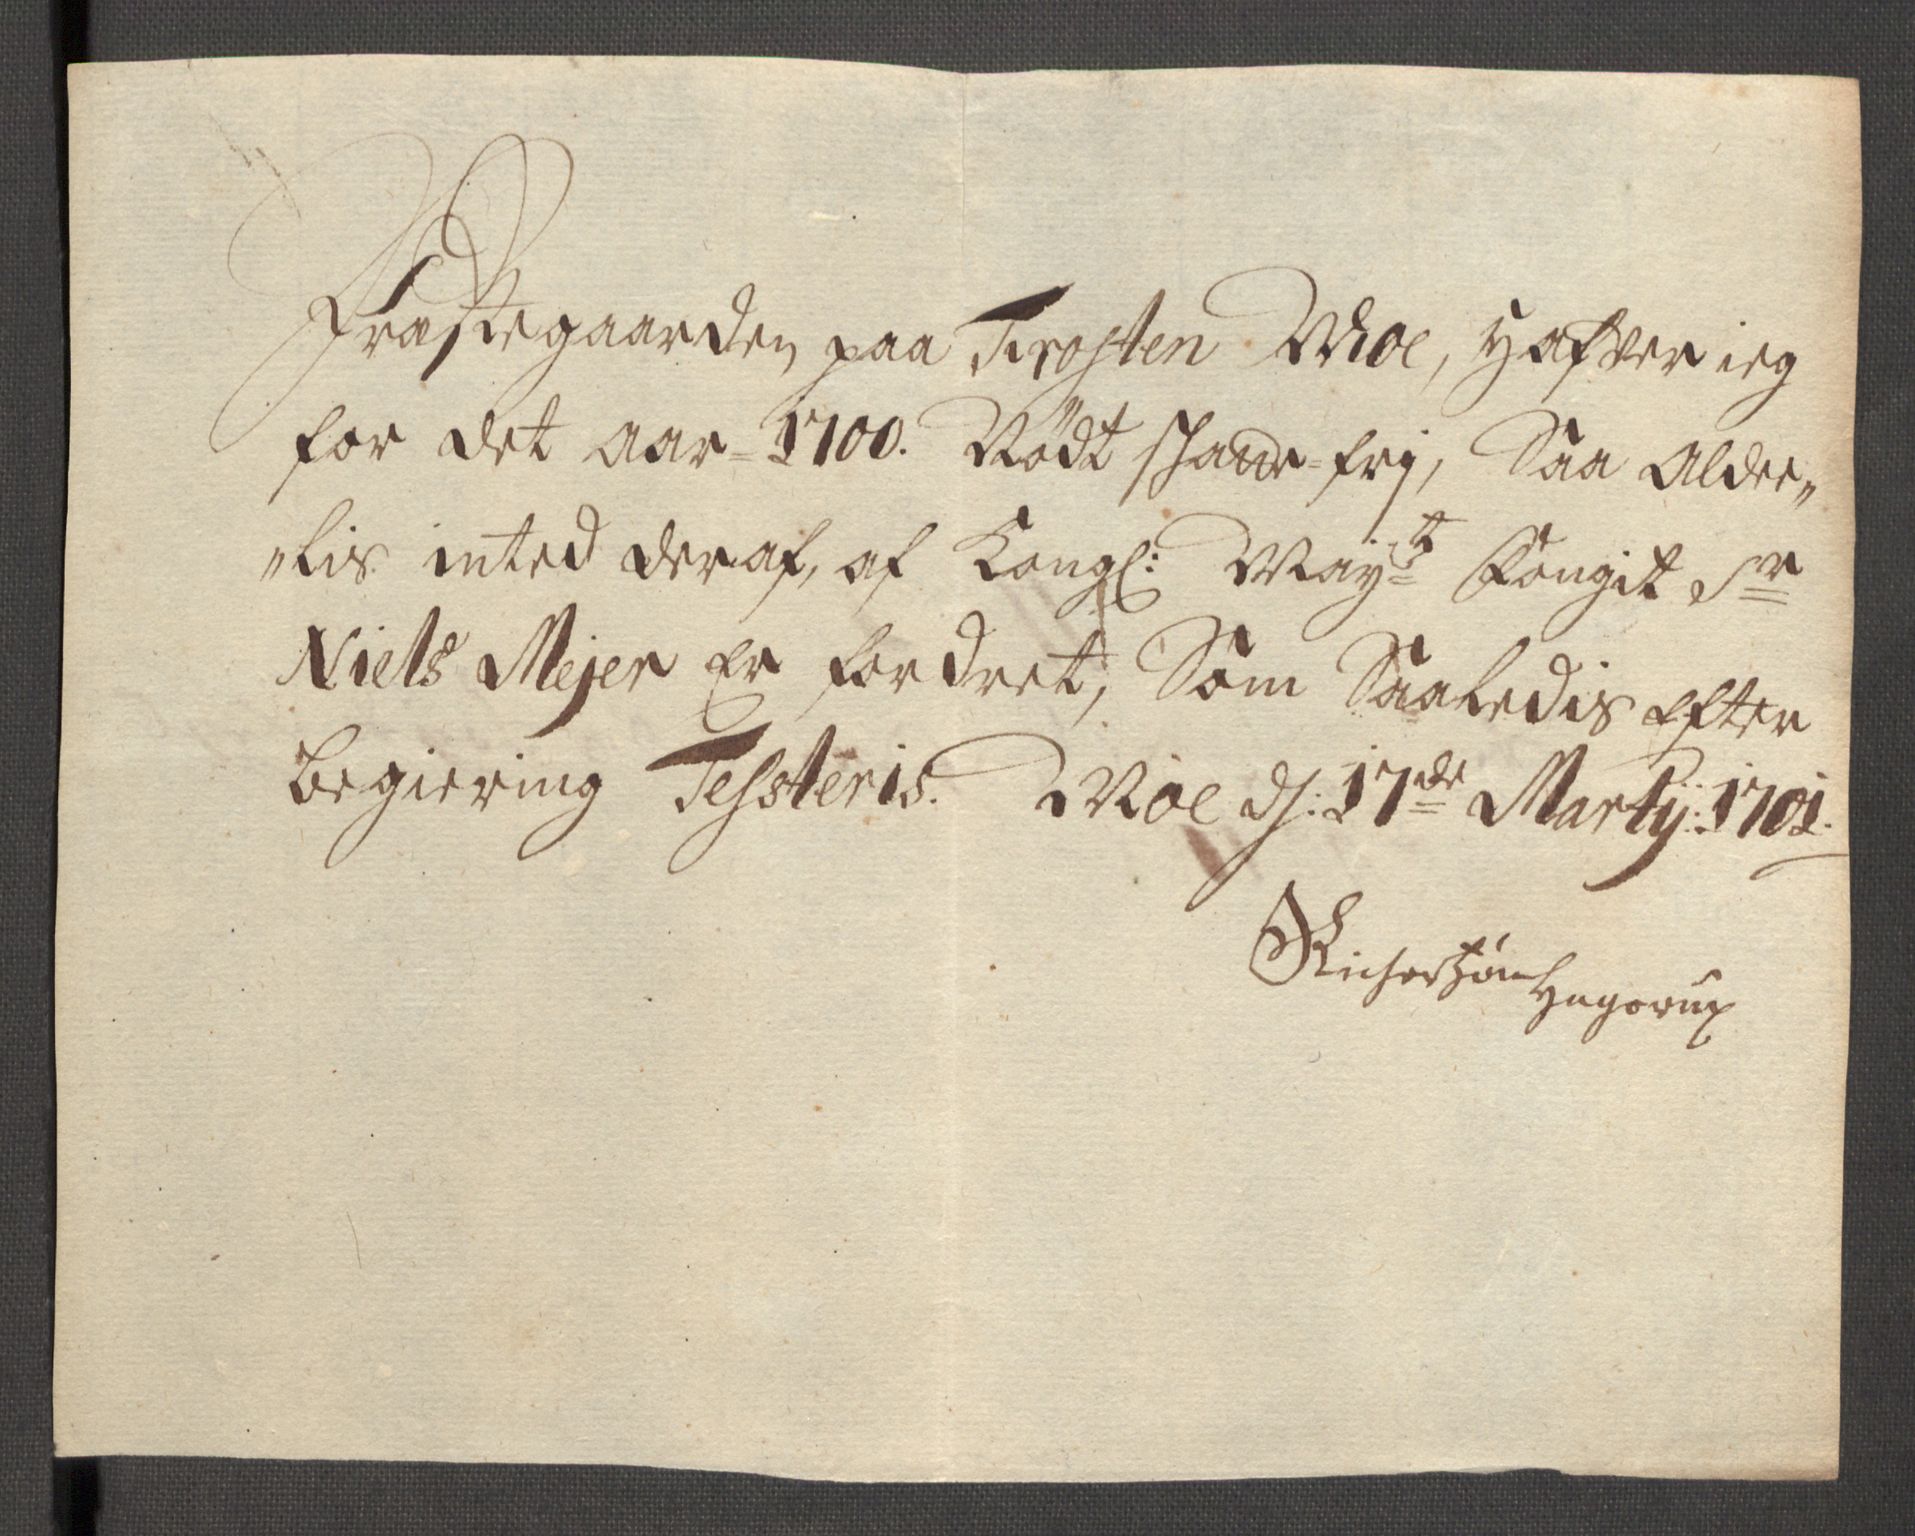 Præstegaarden paa Tirosten Moe, Hafver ieg
for det aar = 1700. Nödt schatte-frj, Saa alde„
„lis inted deraf, af Kongl: Mayts Fougit Sr
Niels Mejer Er fordret, Som Saaledis Efter
begiering Testeris. Moe d: 17de Martij: 1701.
Hagerup